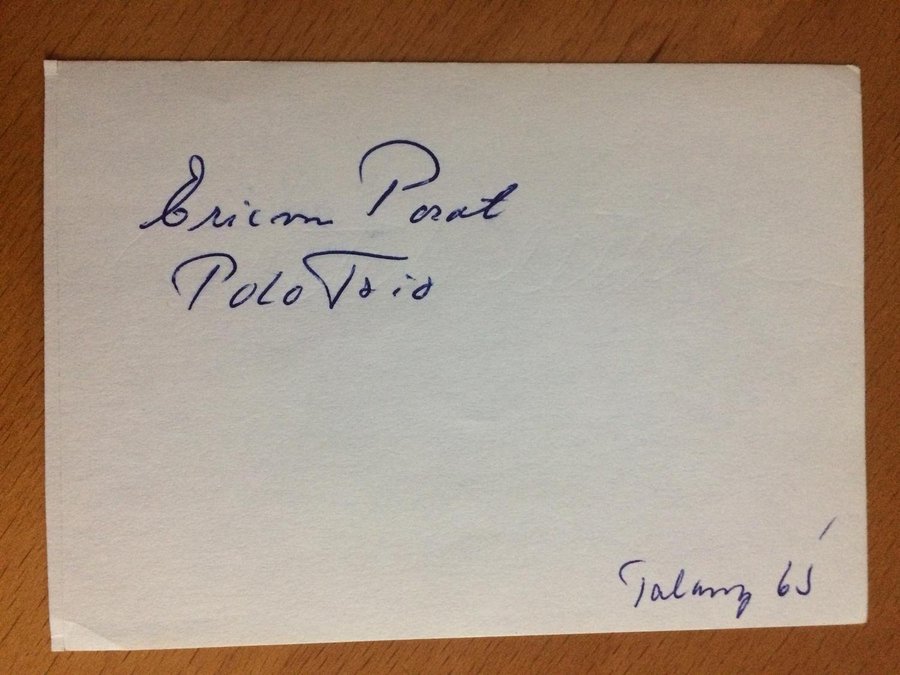 Ericm Porat
Polo Trio
Talang 65